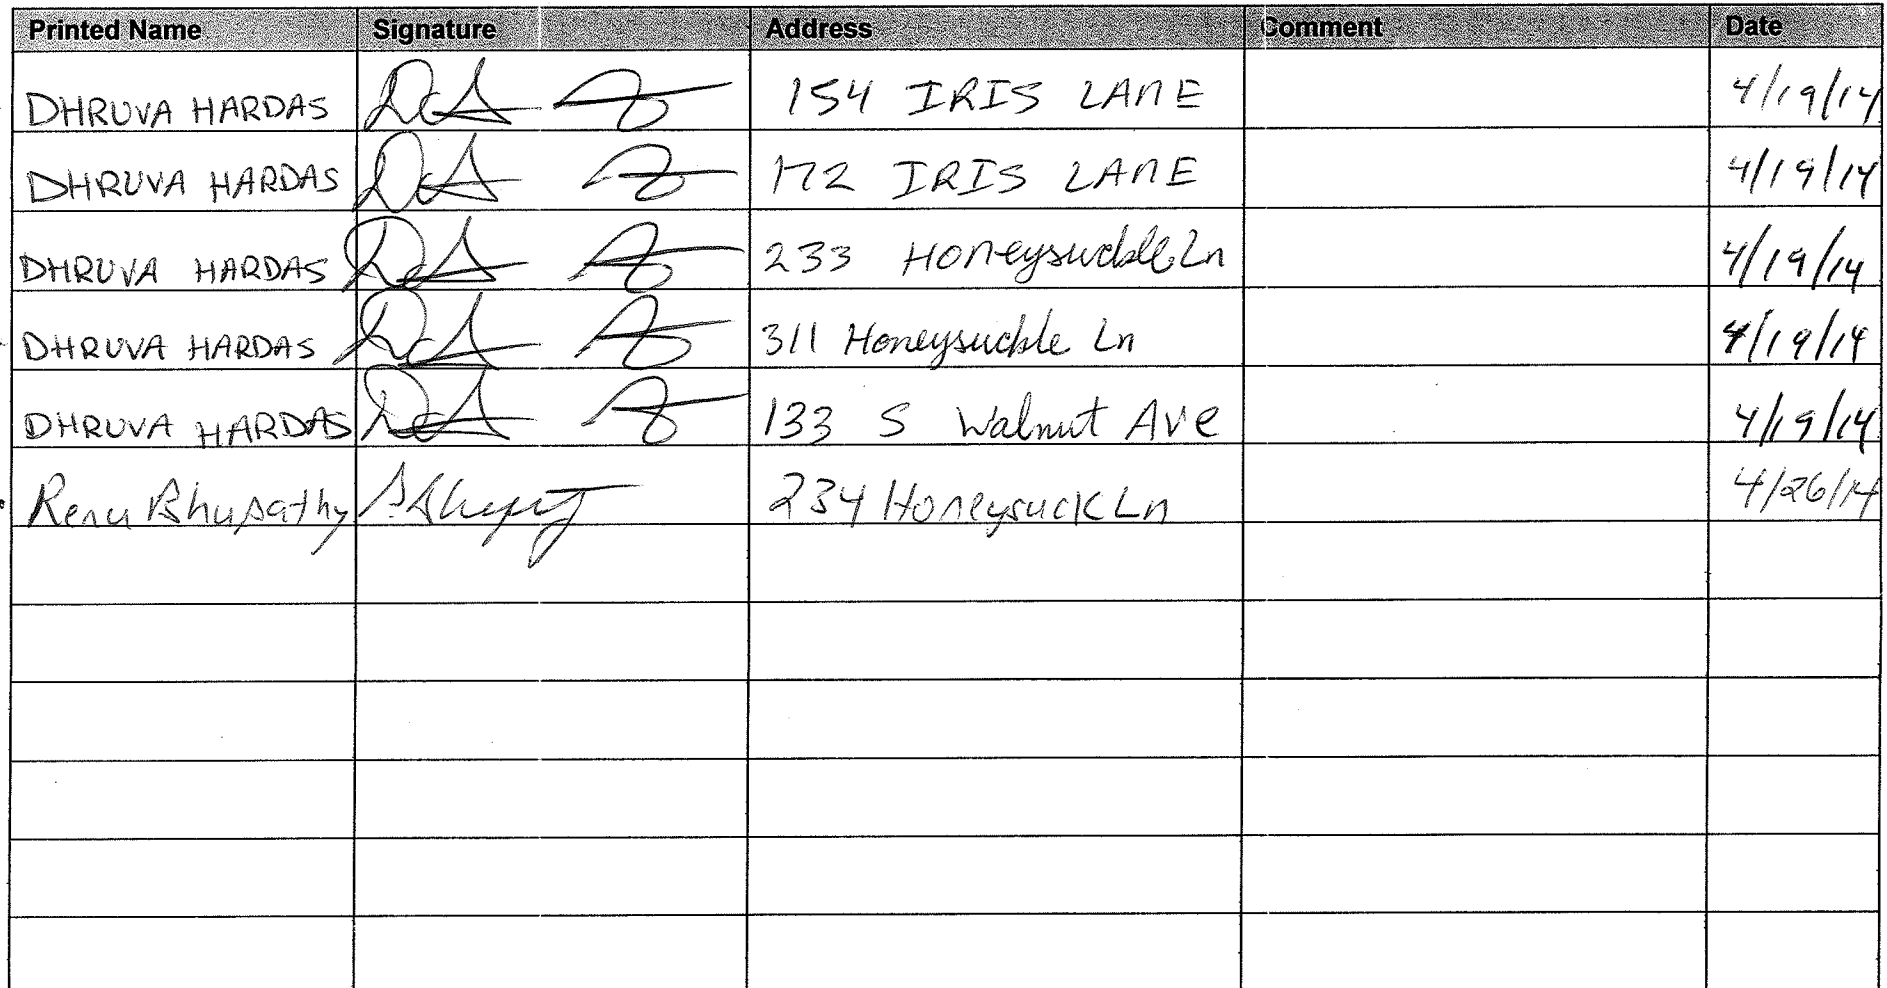 Printed Name Signature Address Comment Date
DHRUVA HARDAS 154 IRIS LANE 4/19/14
DHRUVA HARDAS 172 IRIS LANE 4/19/14
DHRUVA HARDAS 233 Honeysuckle Ln 4/19/14
DHRUVA HARDAS 311 Honeysuckle Ln 4/19/14
DHRUVA HARDAS 133 S Walnut Ave 4/19/14
Renu Bhupathy 234 Honeysuck Ln 4/26/14